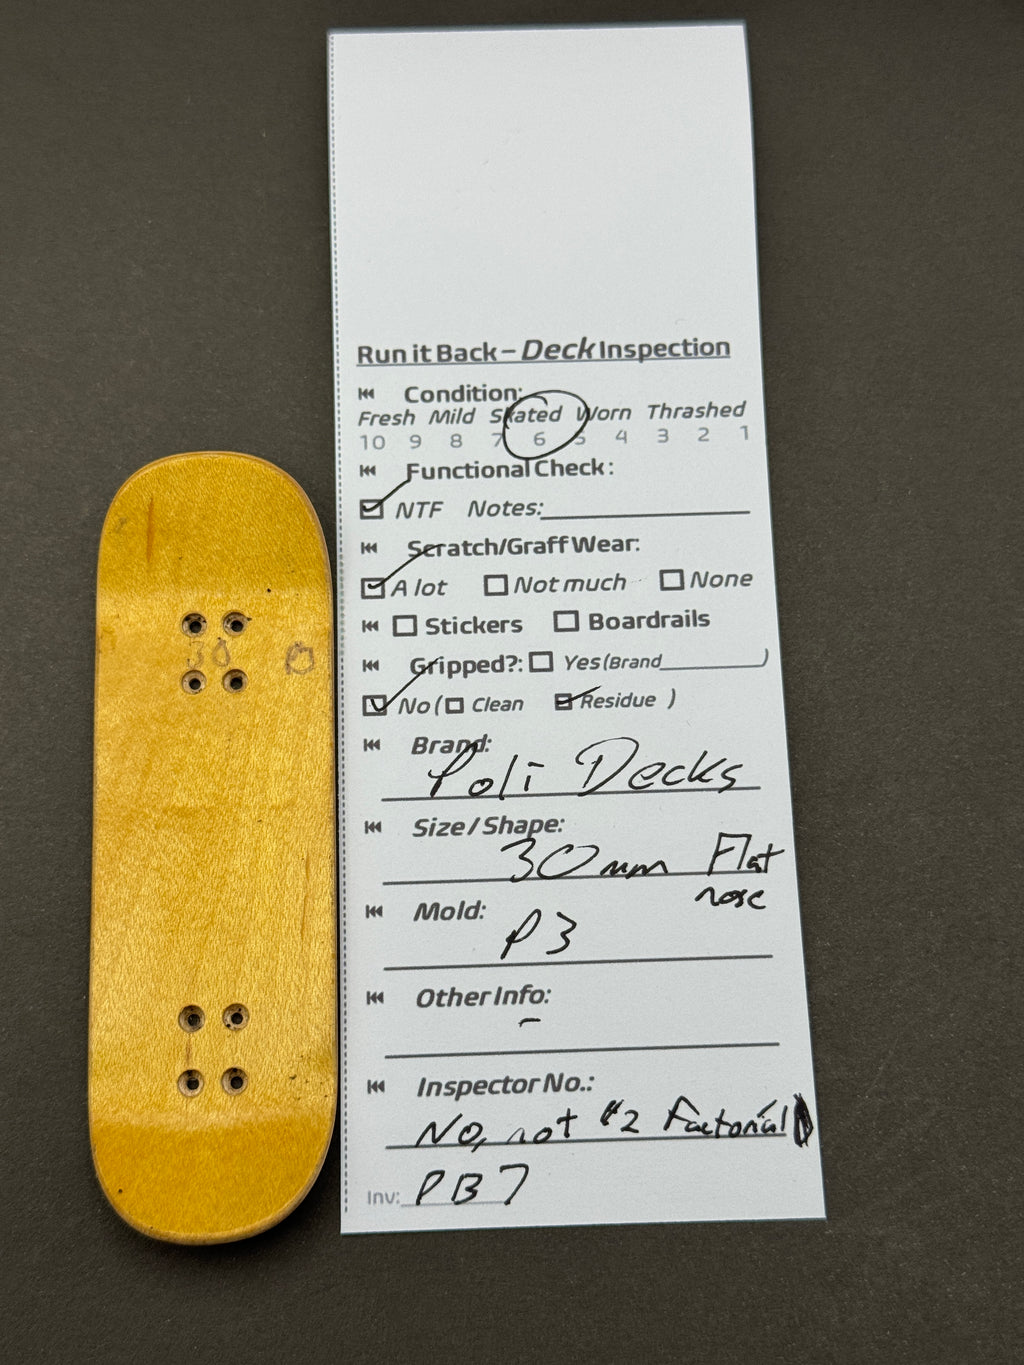 Run it Back – Deck Inspection
Condition:
Fresh Mild Skated Worn Thrashed
10 9 8 7 6 5 4 3 2 1
Functional Check:
NTF Notes:
Scratch/Graff Wear:
A lot Not much None
Stickers Boardrails
Gripped?: Yes (Brand )
No ( Clean Residue )
Brand:
Poli Decks
Size / Shape:
30mm Flat
nose
Mold:
P3
Other Info:
-
Inspector No.:
No, not #2 Factorial
Inv: PB7
30